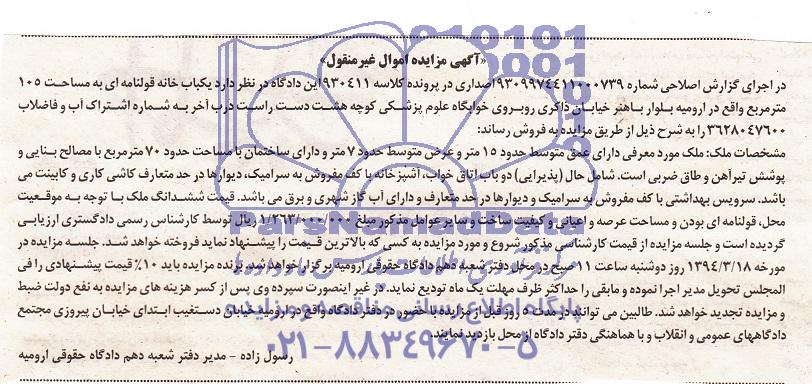 «آگهی مزایده اموال غیرمنقول»
در اجرای گزارش اصلاحی شماره ۹۳۰۹۹۷۴۴۱۱۰۰۰۷۳۹ اصداری در پرونده کلاسه ۹۳۰۴۱۱ این دادگاه در نظر دارد یکباب خانه قولنامه ای به مساحت ۱۰۵
مترمربع واقع در ارومیه بلوار باهنر خیابان ذاکری روبروی خوابگاه علوم پزشکی کوچه هشت دست راست درب آخر به شماره اشتراک آب و فاضلاب
۳۶۲۸۰۴۷۶۰۰ را به شرح ذیل از طریق مزایده به فروش رساند:
مشخصات ملک: ملک مورد معرفی دارای عمق متوسط حدود ۱۵ متر و عرض متوسط حدود ۷ متر و دارای ساختمان با مساحت حدود ۷۰ مترمربع با مصالح بنایی و
پوشش تیرآهن و طاق ضربی است. شامل حال (پذیرایی) دو باب اتاق خواب، آشپزخانه با کف مفروش به سرامیک، دیوارها در حد متعارف کاشی کاری و کابینت می
باشد. سرویس بهداشتی با کف مفروش به سرامیک و دیوارها در حد متعارف و دارای آب گاز شهری و برق می باشد. قیمت ششدانگ ملک با توجه به موقعیت
محل، قولنامه ای بودن و مساحت عرصه و اعیانی و کیفیت ساخت و سایر عوامل مذکور مبلغ ۱/۲۶۳/۰۰۰/۰۰۰ ریال توسط کارشناس رسمی دادگستری ارزیابی
گردیده است و جلسه مزایده از قیمت کارشناسی مذکور شروع و مورد مزایده به کسی که بالاترین قیمت را پیشنهاد نماید فروخته خواهد شد. جلسه مزایده در
مورخه ۱۳۹۴/۳/۱۸ روز دوشنبه ساعت ۱۱ صبح در محل دفتر شعبه دهم دادگاه حقوقی ارومیه برگزار خواهد شد. برنده مزایده باید ۱۰٪ قیمت پیشنهادی را فی
المجلس تحویل مدیر اجرا نموده و مابقی را حداکثر ظرف مهلت یک ماه تودیع نماید. در غیر اینصورت سپرده وی پس از کسر هزینه های مزایده به نفع دولت ضبط
و مزایده تجدید خواهد شد. طالبین می توانند در مدت ۵ روز قبل از مزایده با حضور در دفتر دادگاه واقع در ارومیه خیابان دستغیب ابتدای خیابان پیروزی مجتمع
دادگاههای عمومی و انقلاب و با هماهنگی دفتر دادگاه از محل بازدید نمایند.
رسول زاده - مدیر دفتر شعبه دهم دادگاه حقوقی ارومیه
ParsNamadData
پایگاه اطلاع رسانی مناقصه و مزایده
۰۲۱-۸۸۳۴۹۶۷۰-۵